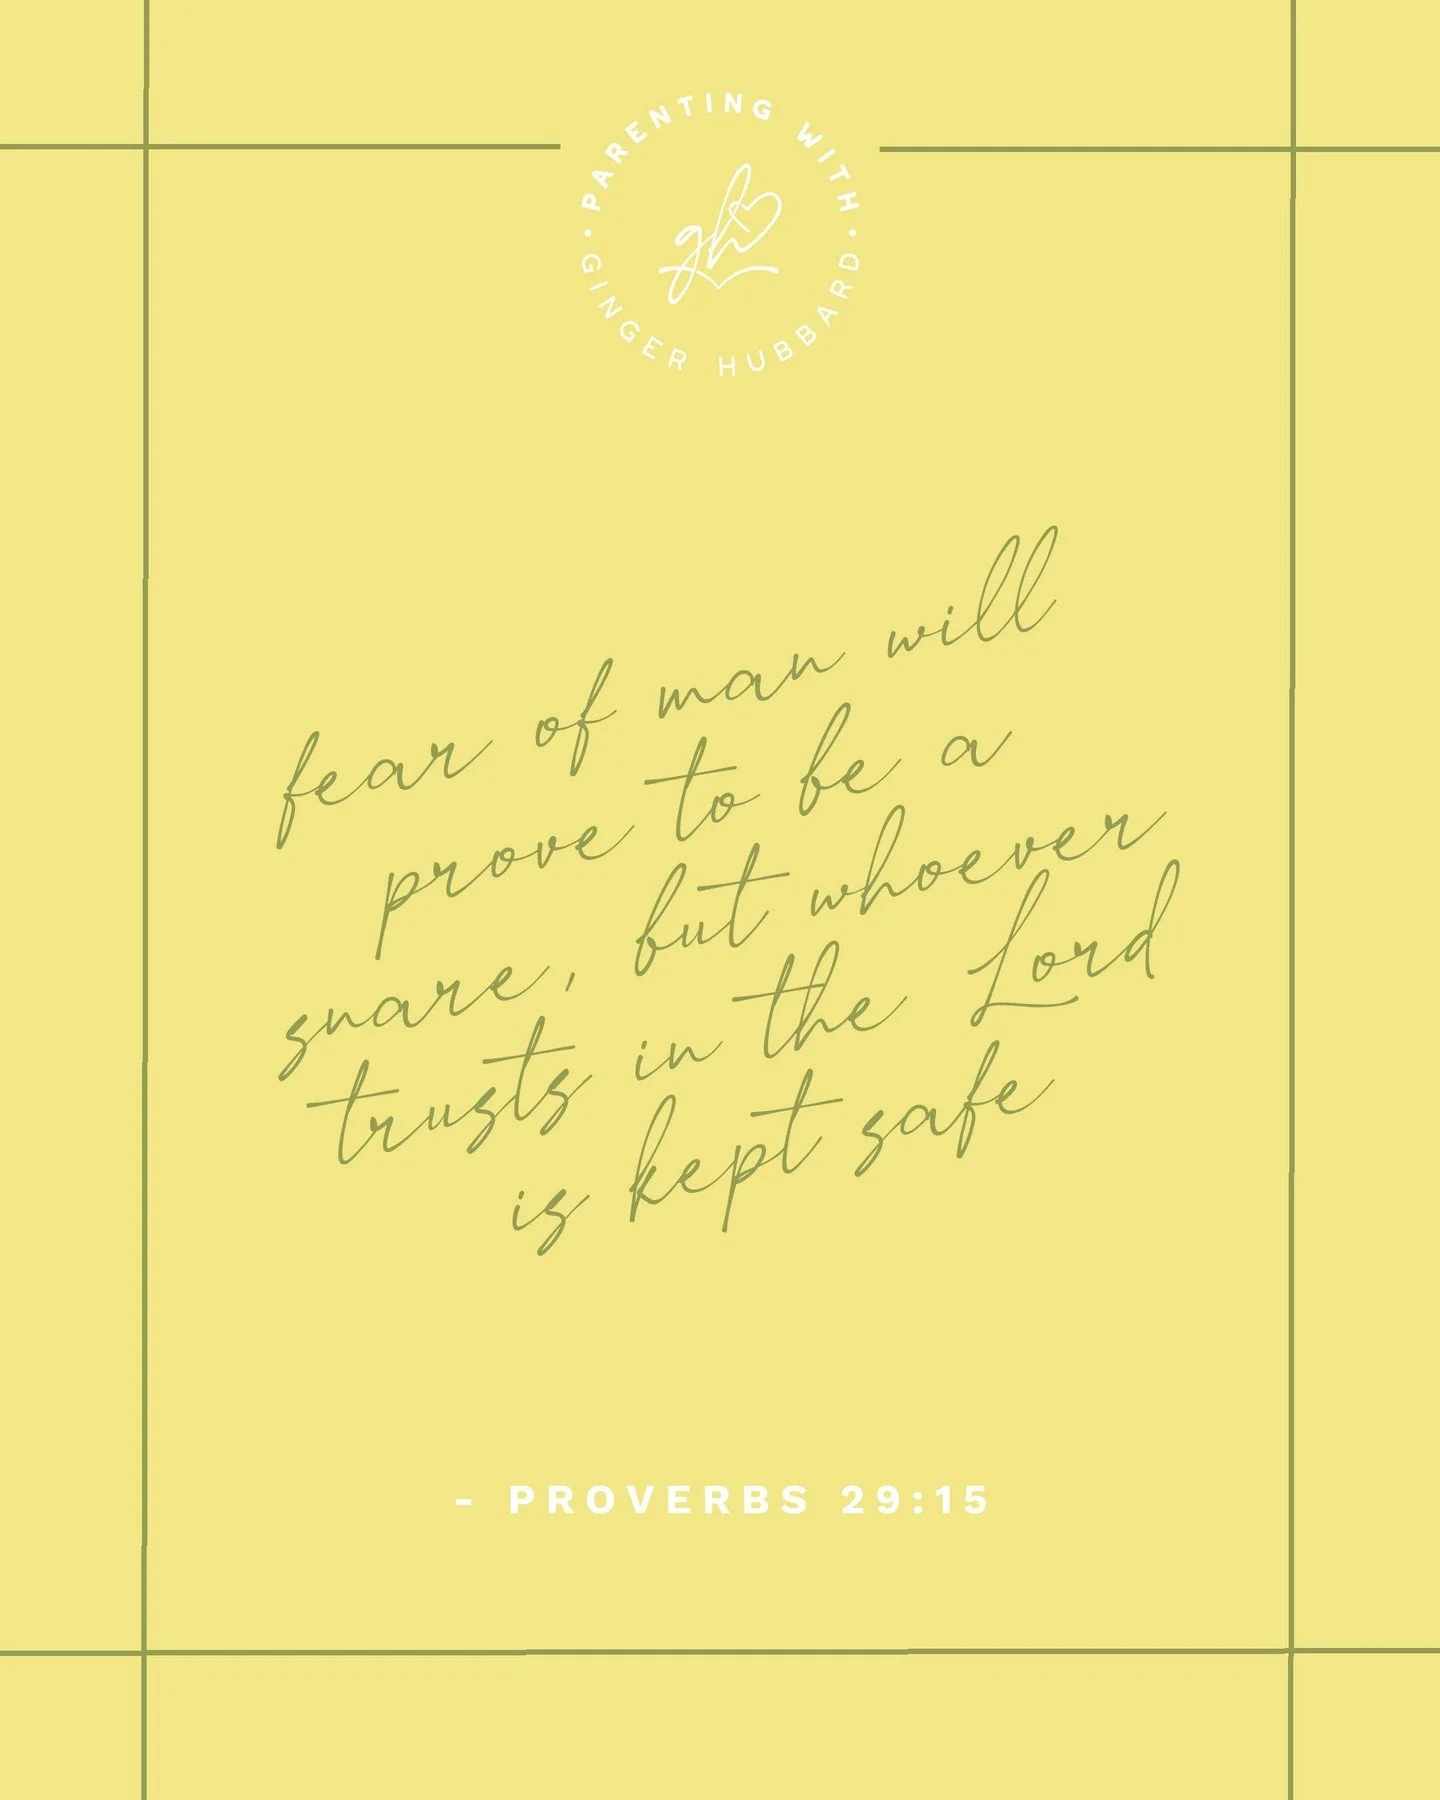 PARENTING WITH
gh
GINGER HUBBARD
fear of man will
prove to be a
snare, but whoever
trusts in the Lord
is kept safe
- PROVERBS 29:15